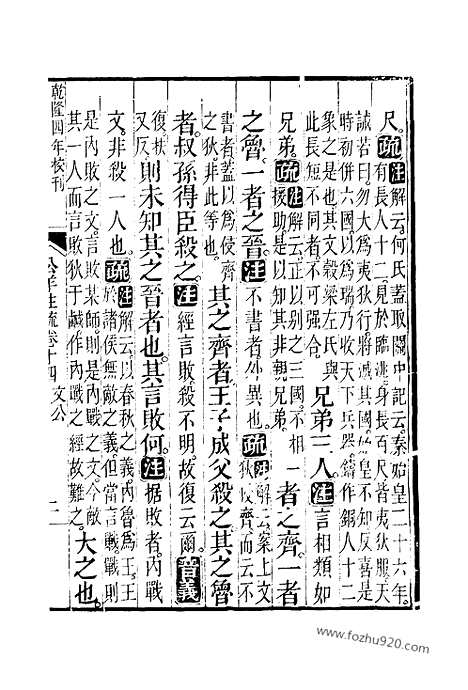 尺。疏注解云何氏蓋取關中記云秦始皇二十六年
有長人十二見於臨洮身長百尺皆夷狄服天
誡若曰勿大為夷狄行將滅其國始皇不知反喜是
時初併六國以為瑞乃收天下兵器鑄作銅人十二
象之是也其文穀梁左氏與
此長短不同者不可強合。
兄弟三人。注言相類如
兄弟。疏注解云正以別之三國不相
援助是以知其非親兄弟
一者之齊。一者
之魯。一者之晉。注不書者外異也。疏注解云案上文
狄侵齊而云不
書者蓋以為使齊
之狄非此等也
其之齊者王子成父殺之其之魯
者。叔孫得臣殺之。注經言敗殺不明故復云爾。音義
復扶
又反
則未知其之晉者也。其言敗何。注据敗者內戰
文。非殺一人也。疏注解云以春秋之義內魯為王王
於諸侯無敵之義但當言戰戰則
是內敗之文言敗某師則是內戰之文今敵
其一人而言敗狄于鹹作內戰之經故難之
大之也。
乾隆四年校刊
公羊注疏卷十四 文公
二
www.fozhu920.com